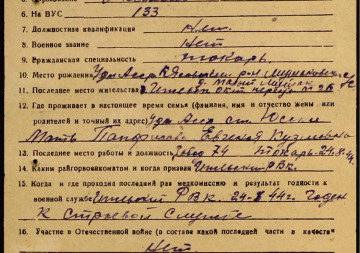 6. На ВУС 133
7. Должностная квалификация Нет.
8. Военное звание Нет
9. Гражданская специальность токарь.
10. Место рождения Удм Асср р-н
11. Последнее место жительства г. Ижевск Окт.
12. Где проживает в настоящее время семья (фамилия, имя и отчество жены или
родителей и точный их адрес) Удм Асср ст. Юски
Мать Евгения Кузмовна
13. Последнее место работы и должность Завод 74 Токарь.
14. Каким райгорвоенкоматом и когда призван РВК.
15. Когда и где проходил последний раз медкомиссию и результат годности к
военной службе РВК 24-8 44г. Годен
К Строевой Службе
16. Участие в Отечественной войне (в составе какой последней части и в качестве
Нет.